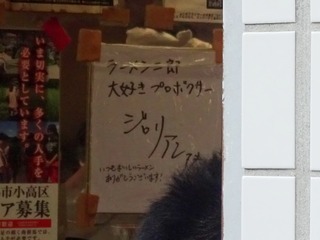 いま切実に、多くの人手を
必要としています。
市小高区
ア募集
ラーメン二郎
大好きプロボクサー
ジロリ
アン
いつもおいしいラーメン
ありがとうございます!